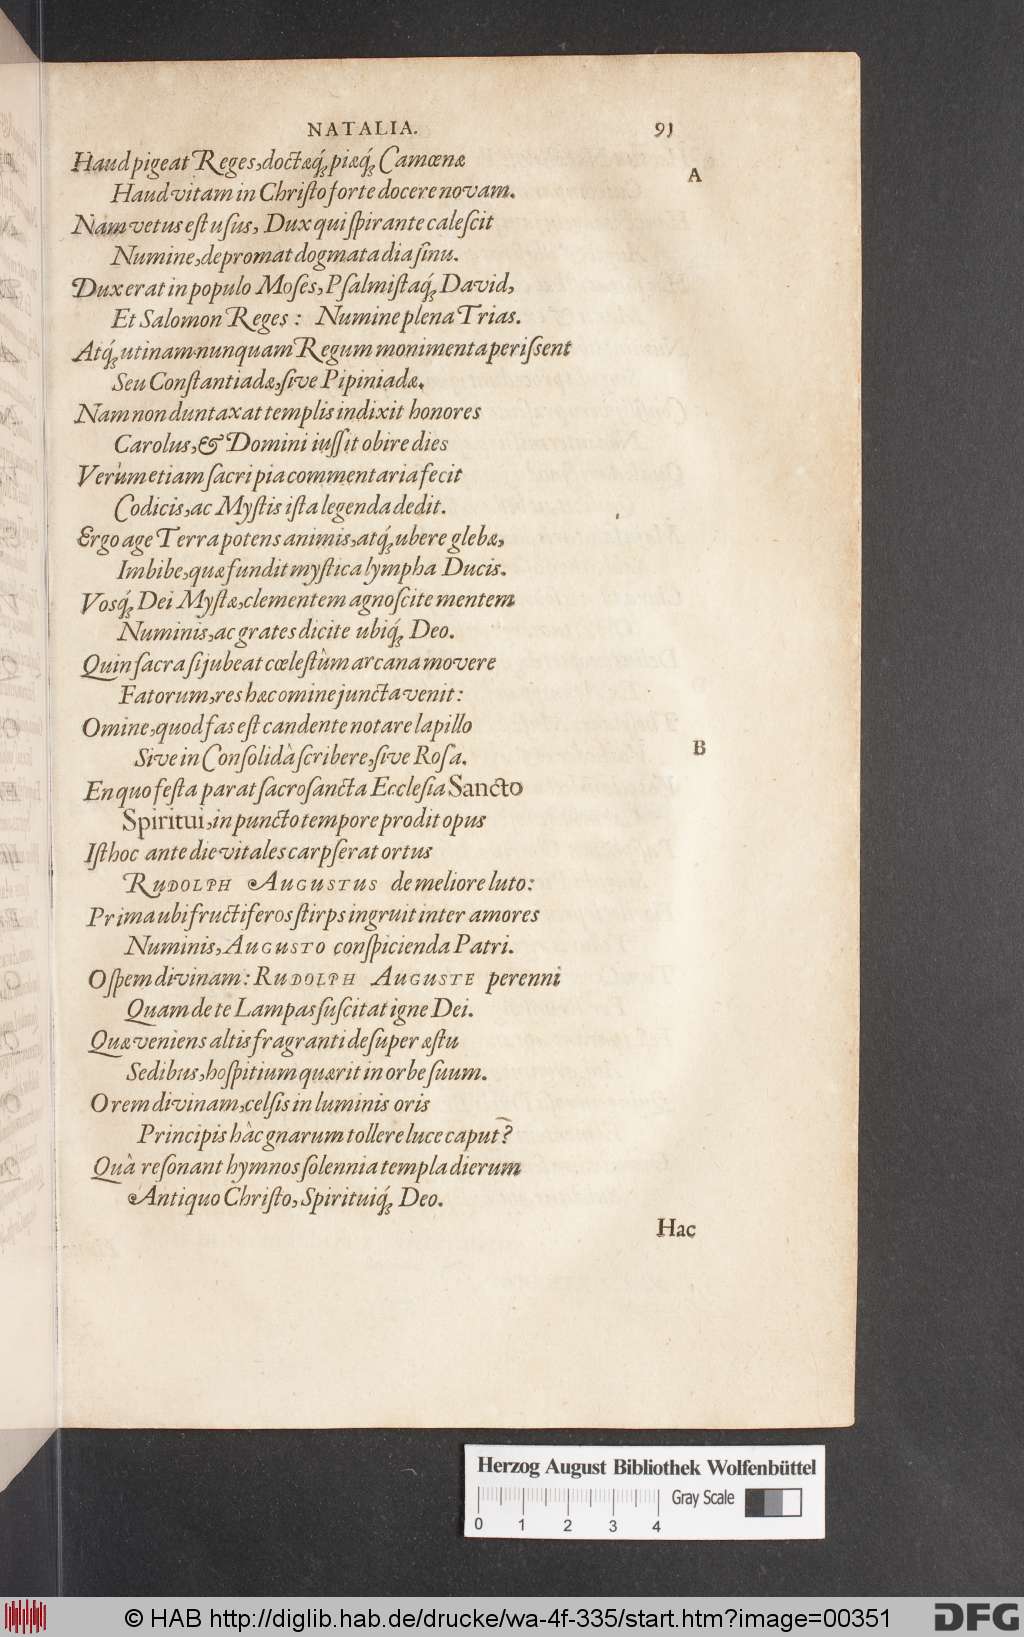 NATALIA. 91
Haud pigeat Reges, doctæq́; piæq́; Camœnæ
A
Haud vitam in Christo forte docere novam.
Nam vetus est usus, Dux qui spirante calescit
Numine, depromat dogmata dia sinu.
Dux erat in populo Moses, Psalmistaq́; David,
Et Salomon Reges: Numine plena Trias.
Atq́; utinam nunquam Regum monimenta perissent
Seu Constantiadæ, sive Pipiniadæ.
Nam non duntaxat templis indixit honores
Carolus, & Domini iussit obire dies
Verùm etiam sacri pia commentaria fecit
Codicis, ac Mystis ista legenda dedit.
Ergo age Terra potens animis, atq́; ubere glebæ,
Imbibe, quæ fundit mystica lympha Ducis.
Vosq́; Dei Mystæ, clementem agnoscite mentem
Numinis, ac grates dicite ubiq́; Deo.
Quin sacra si jubeat cœlestùm arcana movere
Fatorum, res hæc omine juncta venit:
Omine, quod fas est candente notare lapillo
B
Sive in Consolidà scribere, sive Rosa.
En quo festa parat sacrosancta Ecclesia Sancto
Spiritui, in puncto tempore prodit opus
Isthoc ante die vitales carpserat ortus
RUDOLPH AUGUSTUS de meliore luto:
Prima ubi fructiferos stirps ingruit inter amores
Numinis, AUGUSTO conspicienda Patri.
O spem divinam: RUDOLPH AUGUSTE perenni
Quam de te Lampas suscitat igne Dei.
Quæ veniens altis fragranti desuper æstu
Sedibus, hospitium quærit in orbe suum.
O rem divinam, celsis in luminis oris
Principis hàc gnarum tollere luce caput?
Quà resonant hymnos solennia templa dierum
Antiquo Christo, Spirituiq́; Deo.
Hac
Herzog August Bibliothek Wolfenbüttel
Gray Scale
0 1 2 3 4
© HAB http://diglib.hab.de/drucke/wa-4f-335/start.htm?image=00351
DFG